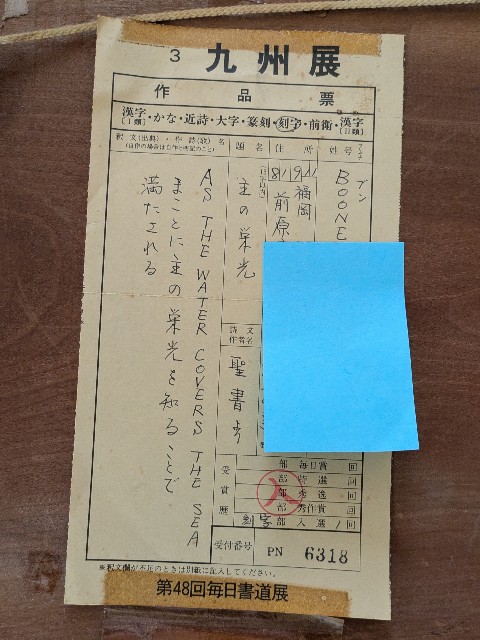 3 九州展
作品票
漢字(I類)・かな・近詩・大字・篆刻・刻字・前衛・漢字(II類)
姓号
ブン
BOONE
住所
819-11
福岡
前原
題名
主の栄光
詩文作者名
聖書より
釈文(出典・作詩(歌)名
(自作の場合は自作と明記のこと)
AS THE WATER COVERS THE SEA
まことに主の栄光を知ることで
満たされる
受賞歴
部毎日賞 回
部特選 回
部秀逸 回
部秀作賞 回
刻字部入選 1回
入
受付番号 PN 6318
※釈文欄が不足のときは別紙に記入してください。
第48回毎日書道展